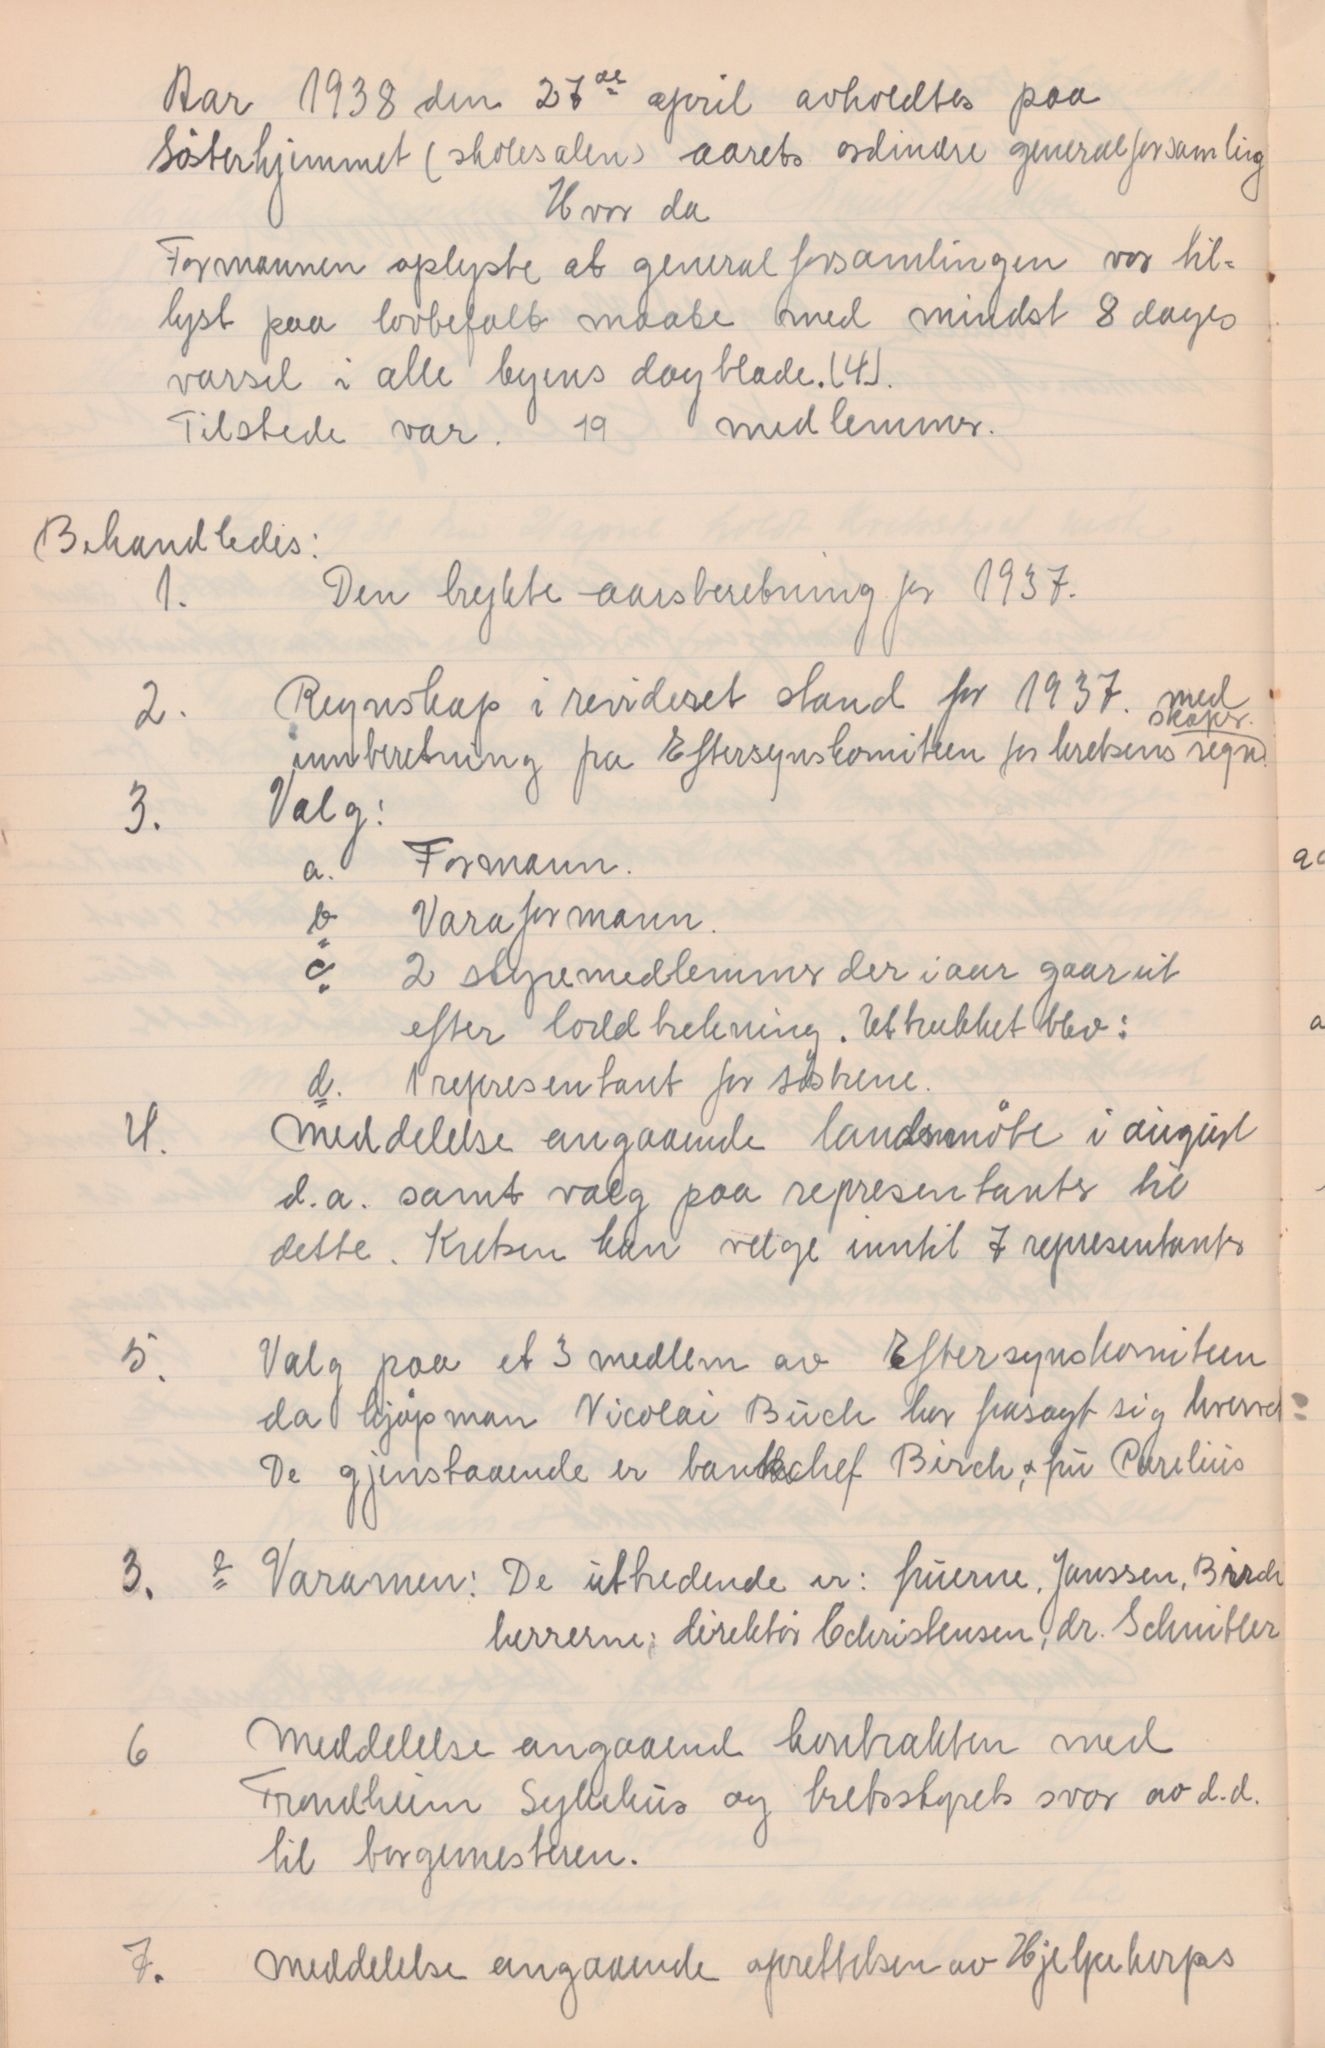 Aar 1938 den 27de april avholdtes paa
Søsterhjemmet (skolesalen) aarets ordinære generalforsamling
Hvor da
Formannen oplyste at generalforsamlingen var til-
lyst paa lovbefalt maate med mindst 8 dages
varsel i alle byens dagblade. (4).
Tilstede var. 19 medlemmer.
Behandledes:
1. Den trykte aarsberetning for 1937.
2. Regnskap i revideret stand for 1937. med
innberetning fra Eftersynskomiteen for kretsens regn
skaper.
3. Valg:
a. Formann.
b Varaformann.
c. 2 styremedlemmer der i aar gaar ut
efter loddtrekning. Uttrukket blev:
d. 1 representant for søstrene.
4. Meddelelse angaaende landsmøte i august
d.a. samt valg paa representanter til
dette. Kretsen kan velge inntil 7 representanter
5. Valg paa et 3 medlem av Eftersynskomiteen
da kjøpman Nicolai Buch har frasagt sig hvervet
De gjenstaaende er bankchef Birch, & fru Parelius
3. e Varamen: De uttredende er: fruerne, Janssen, Birch
herrerne: direktør Christensen, dr. Schnitler
6 Meddelelse angaaend kontrakten med
Trondheim Sykehus og kretsstyrets svar av d.d.
til borgemesteren.
7. Meddelelse angaaende oprettelsen av Hjelpekorps